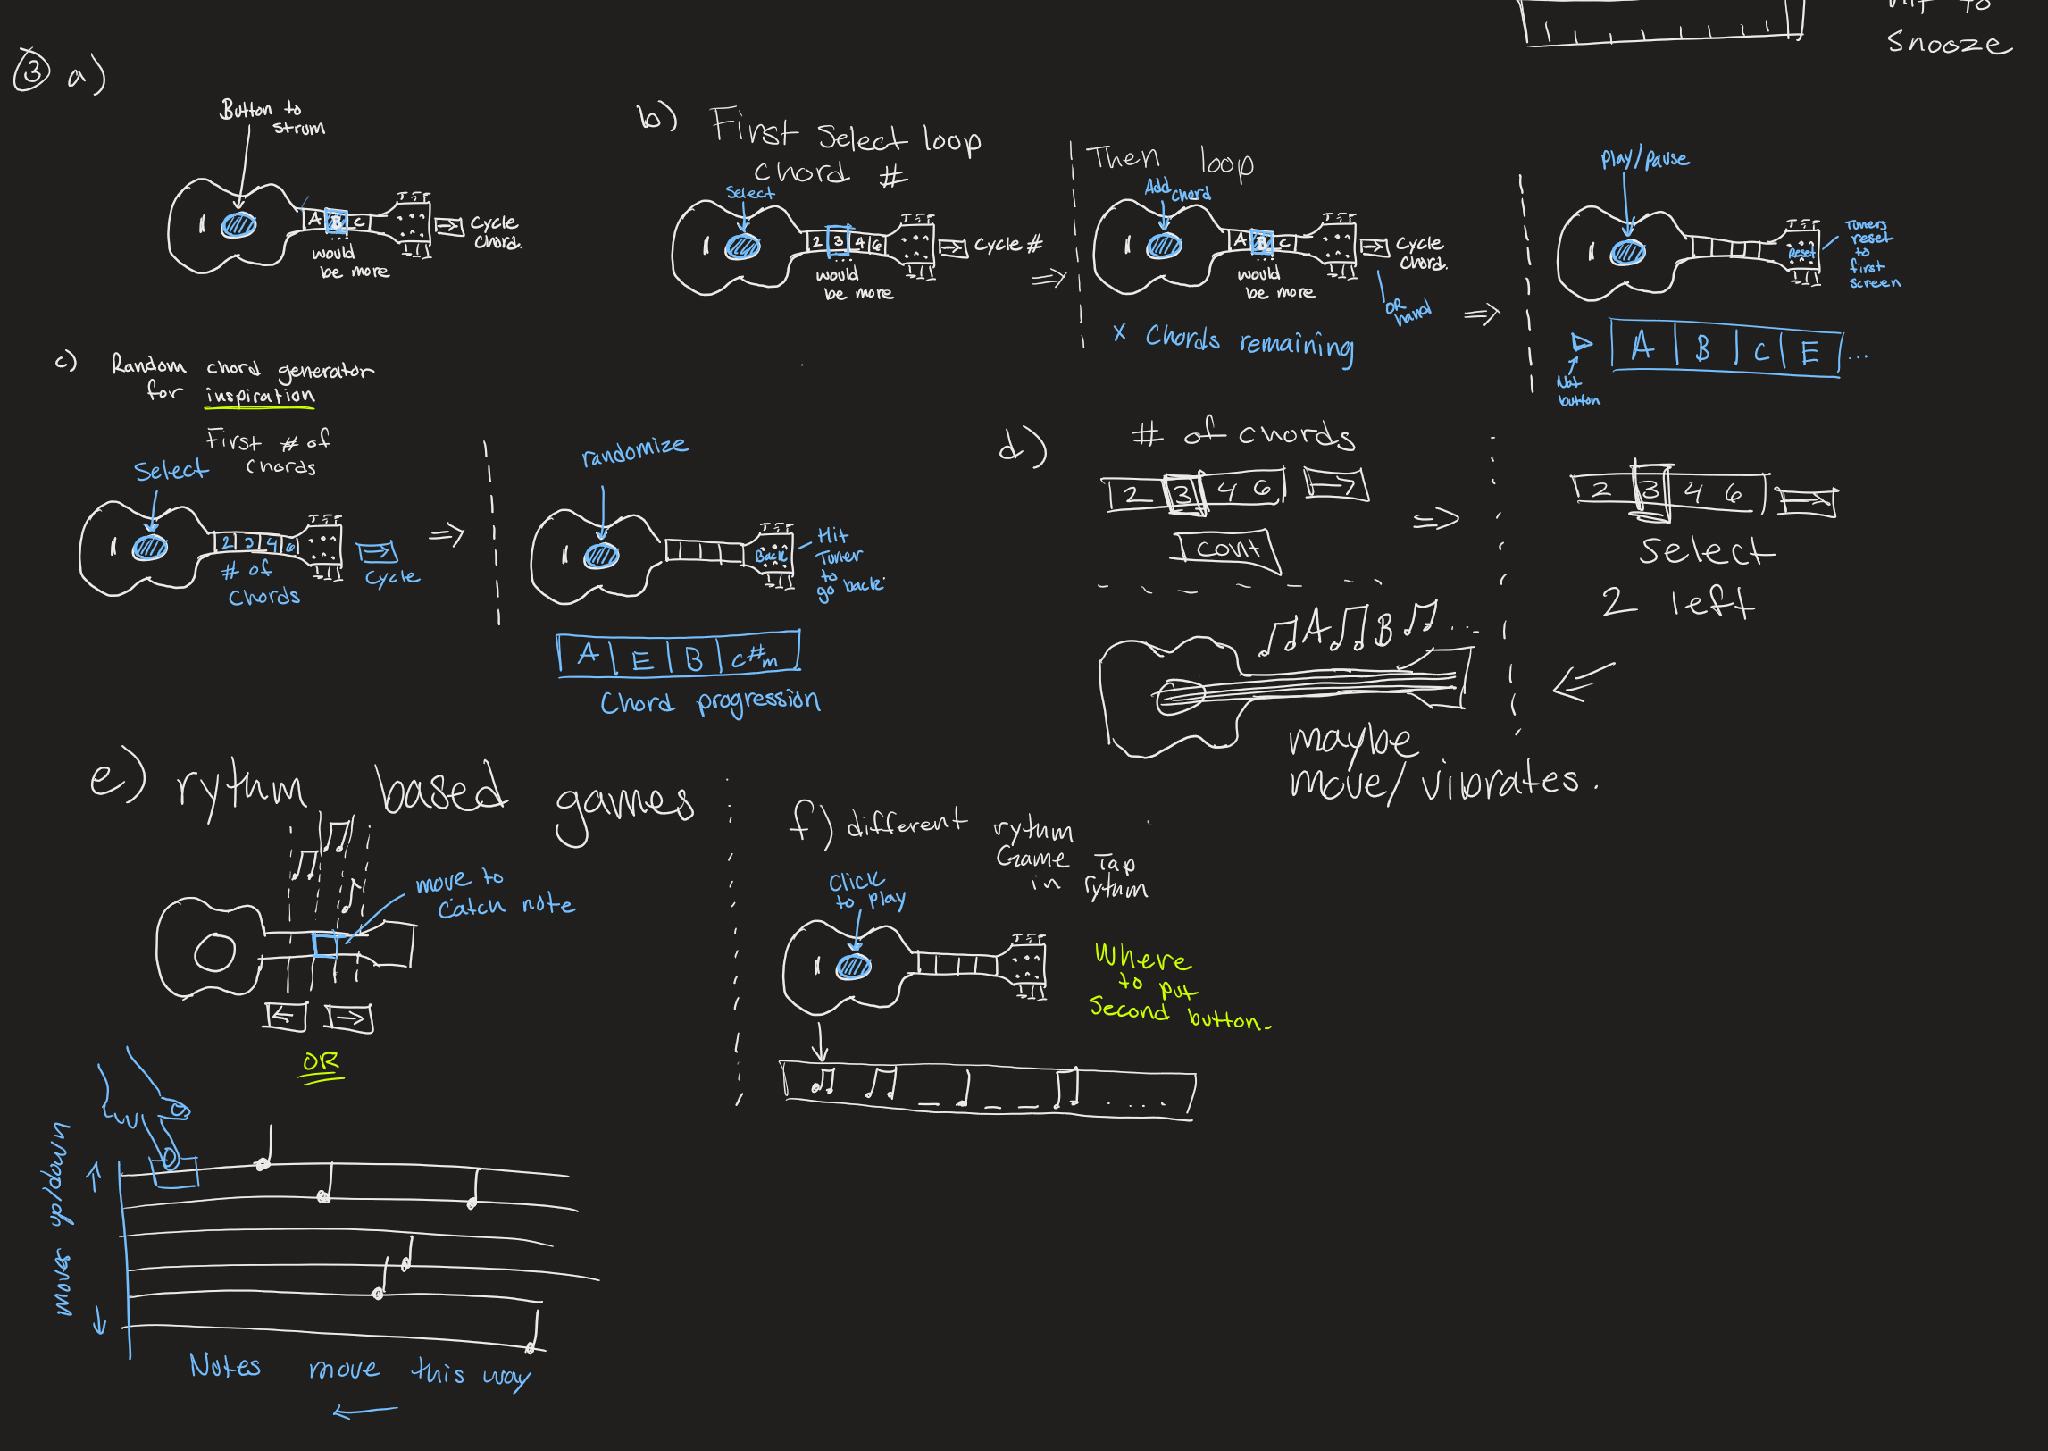 Snooze
③ a)
Button to
strum
A B C
would
be more
Cycle
Chord.
b) First Select loop
Chord #
Select
2 3 4 6
would
be more
Cycle #
Then loop
Add
Chord
A B C
would
be more
Cycle
Chord.
OR
hand
x Chords remaining
Play/Pause
Reset
Tuners
reset
to
first
screen
A B C E ...
Not
button
c) Random chord generator
for inspiration
First # of
Chords
Select
2 3 4 6
# of
Chords
Cycle
randomize
Back
Hit
Tuner
to
go back
A E B C#m
Chord progression
d) # of chords
2 3 4 6
cont
2 3 4 6
Select
2 left
A B ...
maybe
move/vibrates.
e) rytum based games
move to
Catch note
OR
moves up/down
Notes move this way
f) different rytum
Game Tap
in rytum
Click
to play
Where
to put
Second button.